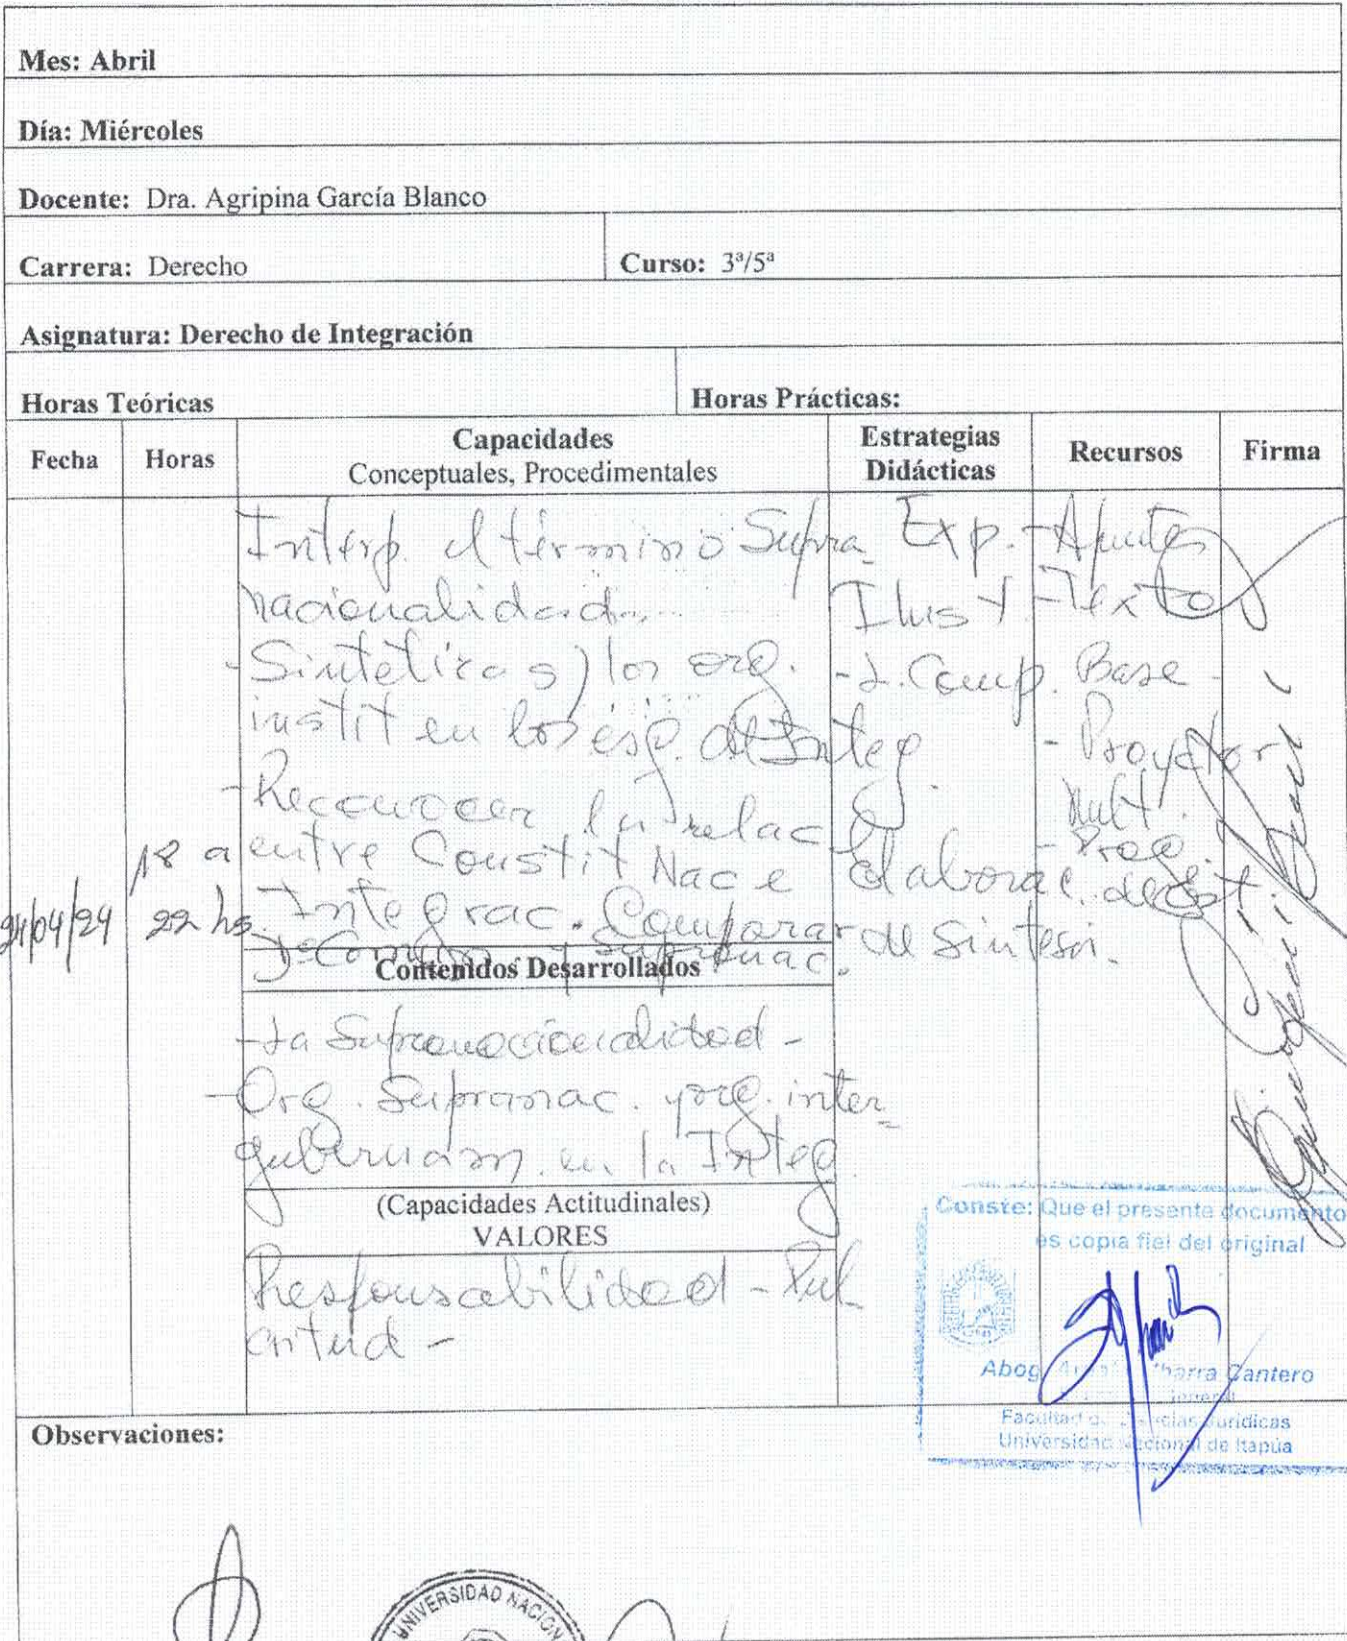 Mes: Abril
Día: Miércoles
Docente: Dra. Agripina García Blanco
Carrera: Derecho
Curso: 3ª/5ª
Asignatura: Derecho de Integración
Horas Teóricas
Horas Prácticas:
Fecha
Horas
Capacidades
Conceptuales, Procedimentales
Estrategias
Didácticas
Recursos
Firma
24/04/24
18 a
22 hs
Interp. el término Supra
nacionalidad.
- Sintetiza los org.
instit en los esp. de Integ.
- Reconocer la relac
entre Constit Nac e
Integrac. Comparar
Exp.
Ilust
- L. Comp.
Elaborac.
de Síntesis.
- Apuntes
- Texto
Base -
- Proyector
Mult.
Contenidos Desarrollados
- La Supranacionalidad -
- Org. Supranac. y org. inter
gubernam. en la Integ.
(Capacidades Actitudinales)
VALORES
Responsabilidad - Pul
critud -
Conste: Que el presente documento
es copia fiel del original
Abog. Ibarra Cantero
General
Facultad de Ciencias Jurídicas
Universidad Nacional de Itapúa
Observaciones:
UNIVERSIDAD NACION